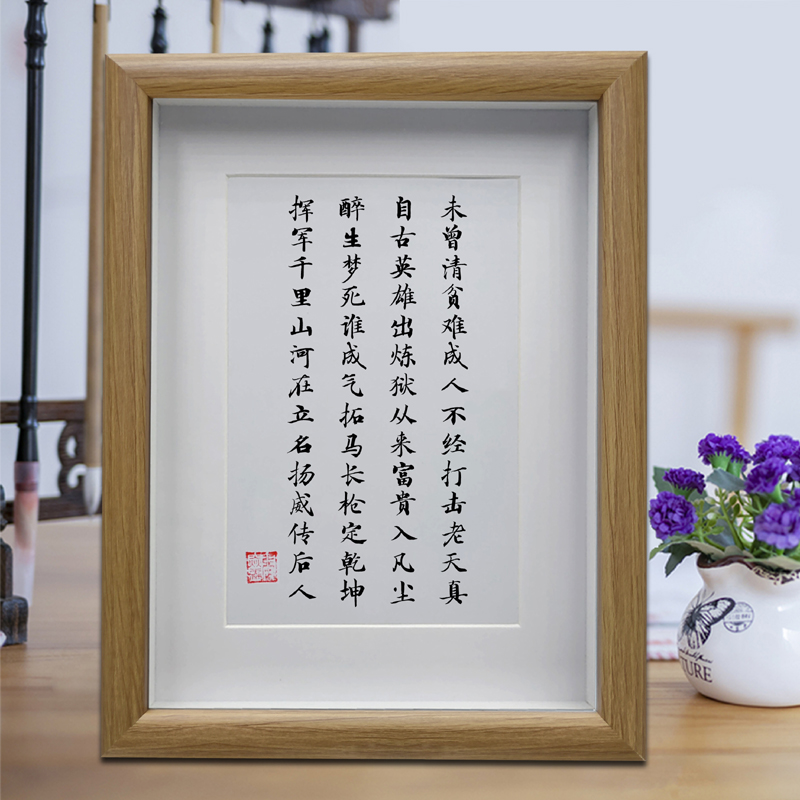 未曾清贫难成人不经打击老天真
自古英雄出炼狱从来富贵入凡尘
醉生梦死谁成气拓马长枪定乾坤
挥军千里山河在立名扬威传后人
TURE